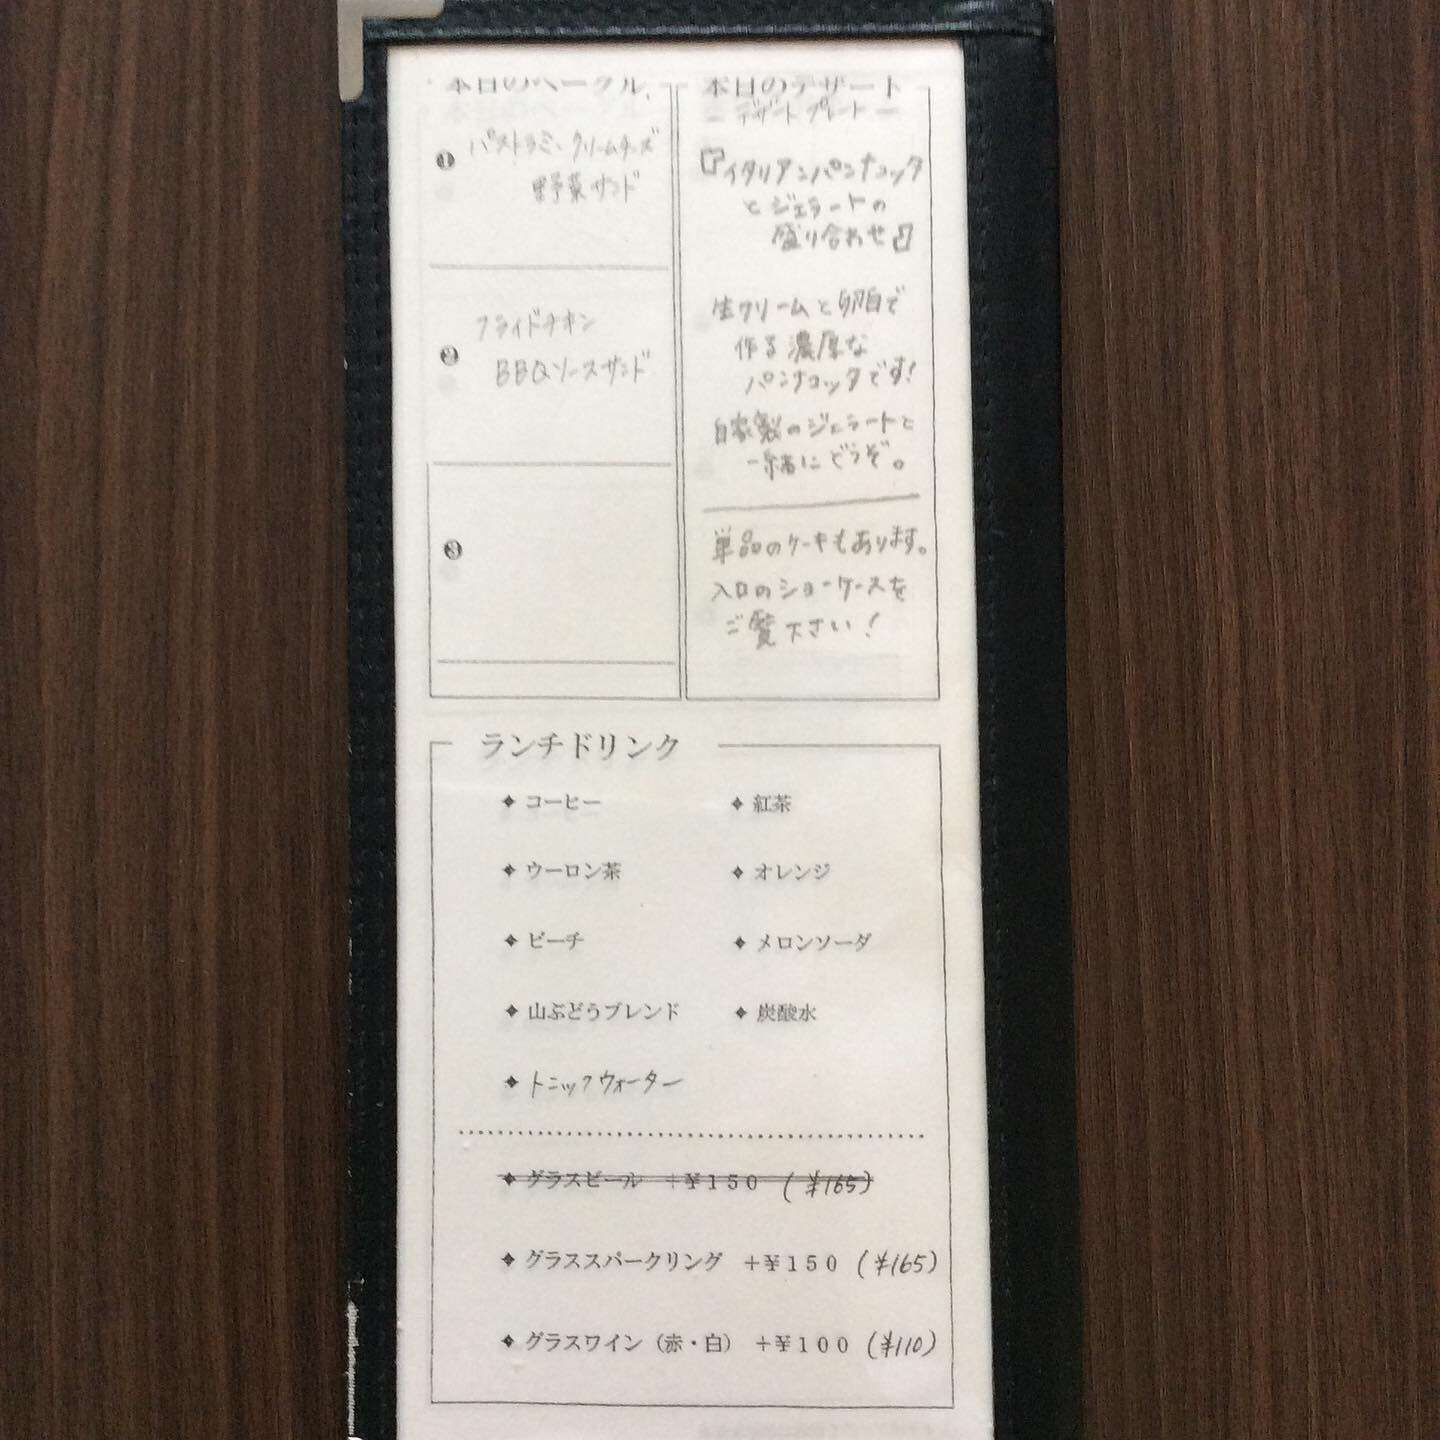 本日のベーグル
❶ パストラミ、クリームチーズ
野菜サンド
❷ フライドチキン
BBQソースサンド
❸
本日のデザート
― デザートプレート ―
『イタリアンパンナコッタ
とジェラートの
盛り合わせ』
生クリームと卵白で
作る濃厚な
パンナコッタです!
自家製のジェラートと
一緒にどうぞ。
単品のケーキもあります。
入口のショーケースを
ご覧下さい!
ランチドリンク
✦ コーヒー ✦ 紅茶
✦ ウーロン茶 ✦ オレンジ
✦ ピーチ ✦ メロンソーダ
✦ 山ぶどうブレンド ✦ 炭酸水
✦ トニックウォーター
✦ グラスビール +¥150 (¥165)
✦ グラススパークリング +¥150 (¥165)
✦ グラスワイン(赤・白) +¥100 (¥110)